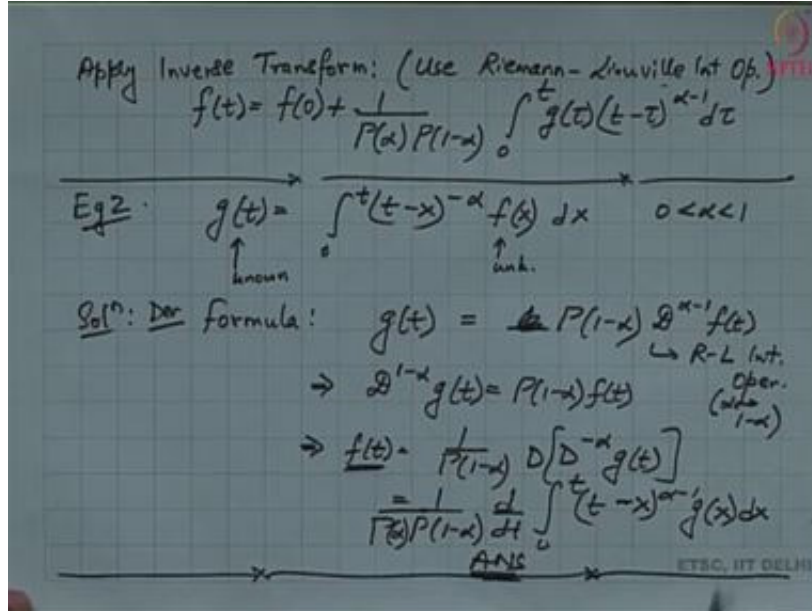 Apply Inverse Transform: (Use Riemann-Liouville Int Op.)
f(t) = f(0) + 1/(Γ(α) Γ(1-α)) ∫₀ᵗ g(τ)(t-τ)^(α-1) dτ
Eg 2. g(t) = ∫₀ᵗ (t-x)^(-α) f(x) dx 0<α<1
↑ known ↑ unk.
Solⁿ: Der formula: g(t) = Γ(1-α) D^(α-1) f(t)
↳ R-L Int. Oper. (α → 1-α)
⇒ D^(1-α) g(t) = Γ(1-α) f(t)
⇒ f(t) = 1/Γ(1-α) D[D^(-α) g(t)]
= 1/(Γ(α) Γ(1-α)) d/dt ∫₀ᵗ (t-x)^(α-1) g(x) dx
ANS
ETSC, IIT DELHI